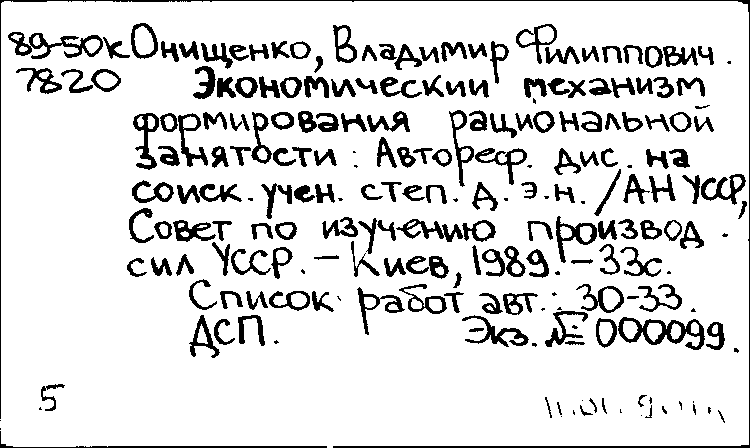 89-50к Онищенко, Владимир Филиппович.
7820 Экономический механизм
формирования рациональной
занятости : Автореф. дис. на
соиск. учен. степ. д. э. н. / АН УССР,
Совет по изучению производ.
сил УССР. – Киев, 1989. – 33с.
Список работ авт.: 30-33.
ДСП. Экз. № 000099.
5